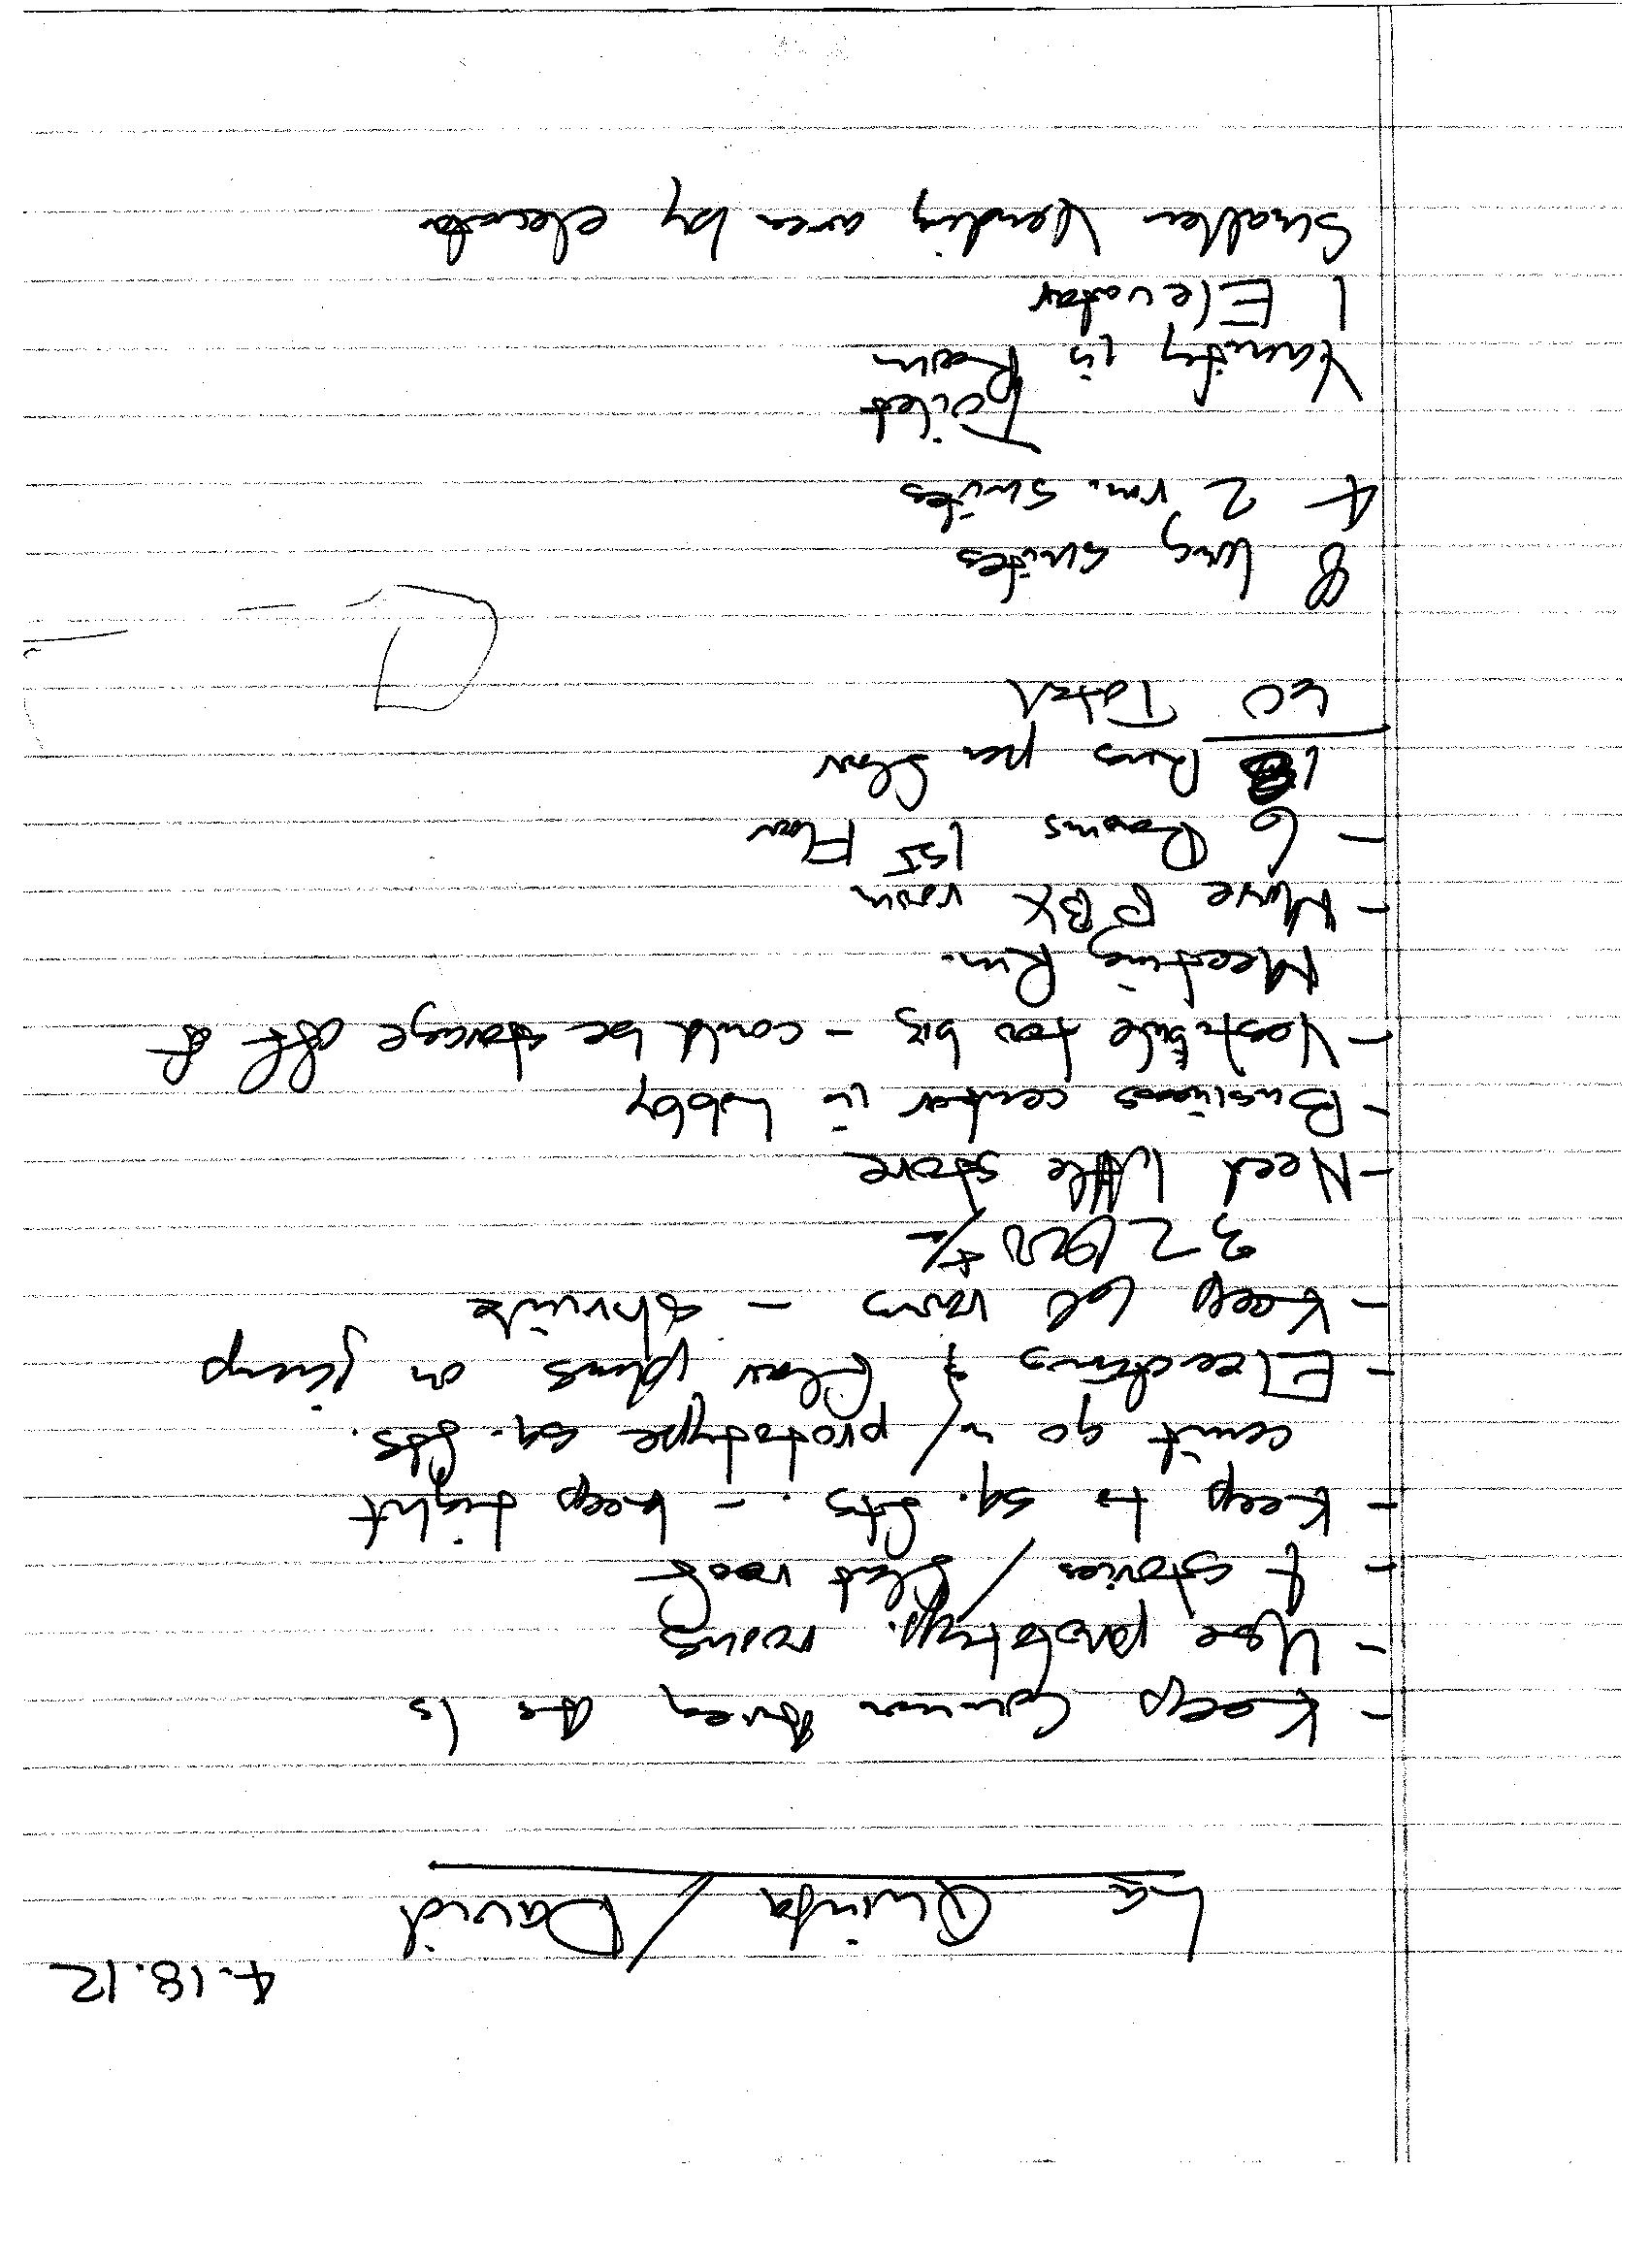 4.18.12
La Quinta / David
- Keep Common Area As Is
- Use prototyp. rooms
- 4 stories / flat roof
- Keep to sq. fts. - keep tight
can't go w/ prototype sq. fts.
- Elevations & floor plans on jump
- Keep lobby - shrink
- Need little store
- Business center in Lobby
- Vestibule too big - could be storage off of
Meeting Rm.
- Move PBX room
- 6 Rooms 1st Floor
18 Rms per floor
60 Total
8 king suites
4 2 rm. suites
Toilet
Vanity in Room
1 Elevator
Smaller Vending area by elevator